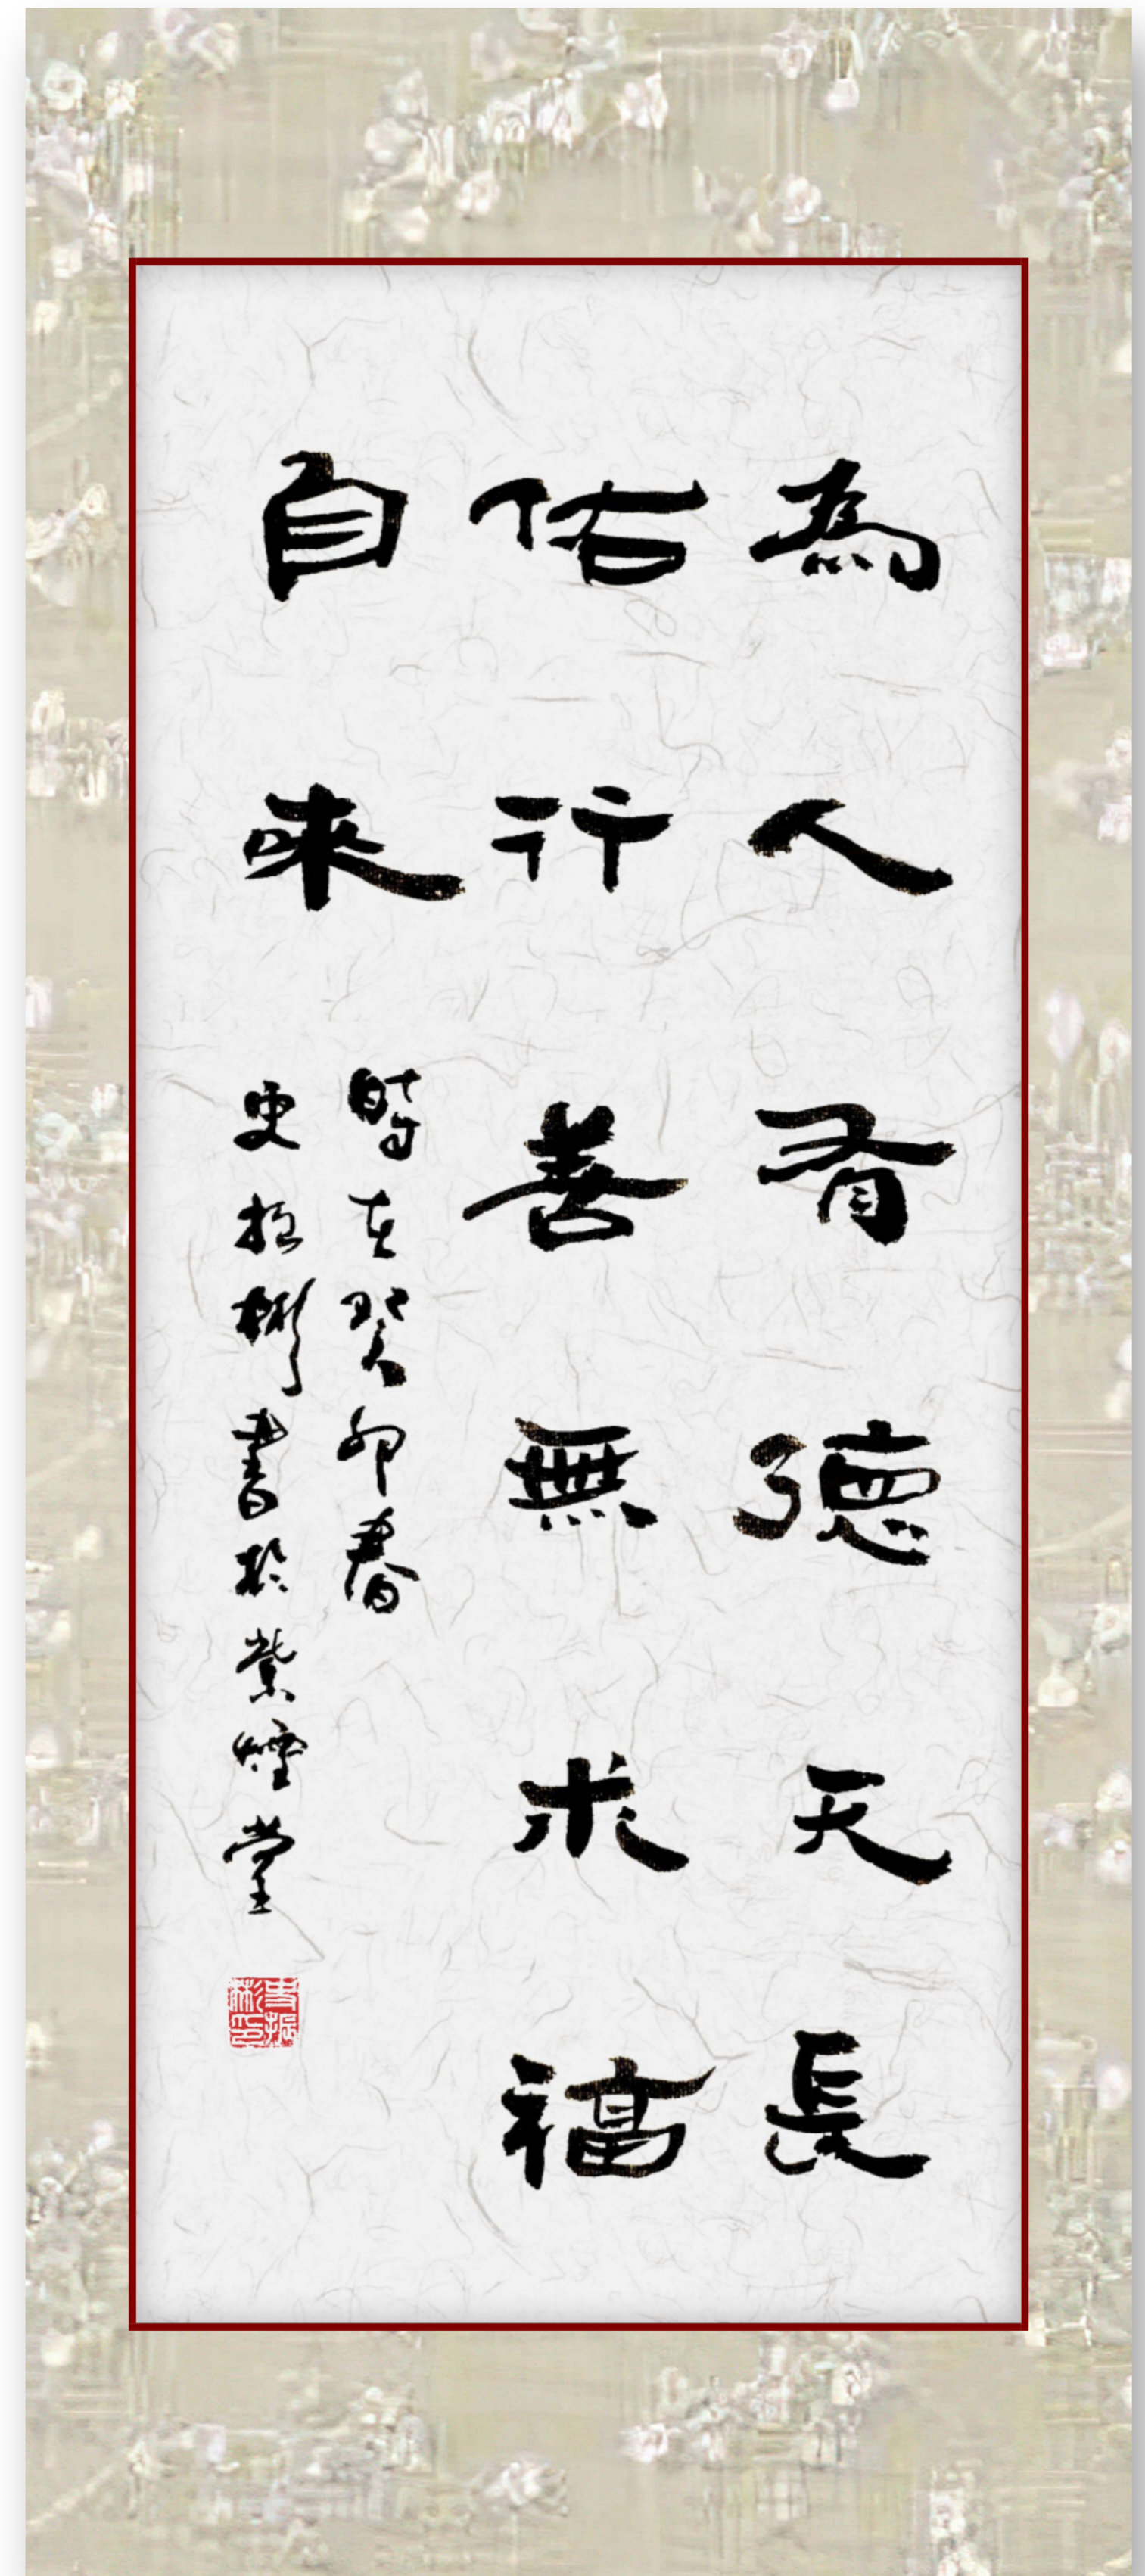 為人有德天長
佑行善無求福
自來
時在癸卯春
史振彬書於紫煙堂
史振彬印